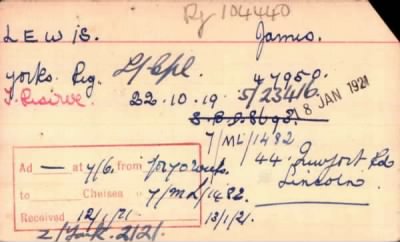 Rj 104440
LEWIS. James.
Yorks. Reg. L/Cpl. 47950.
T. Reserve. 22.10.19 5/23416.
8 JAN 1921
7/ML/1482
44. Newport Rd
Lincoln.
Ad — at 4/6. from
to Chelsea 7/ML/1482.
Received 12/1/21. 13/1/21.
2/York. 2/21.